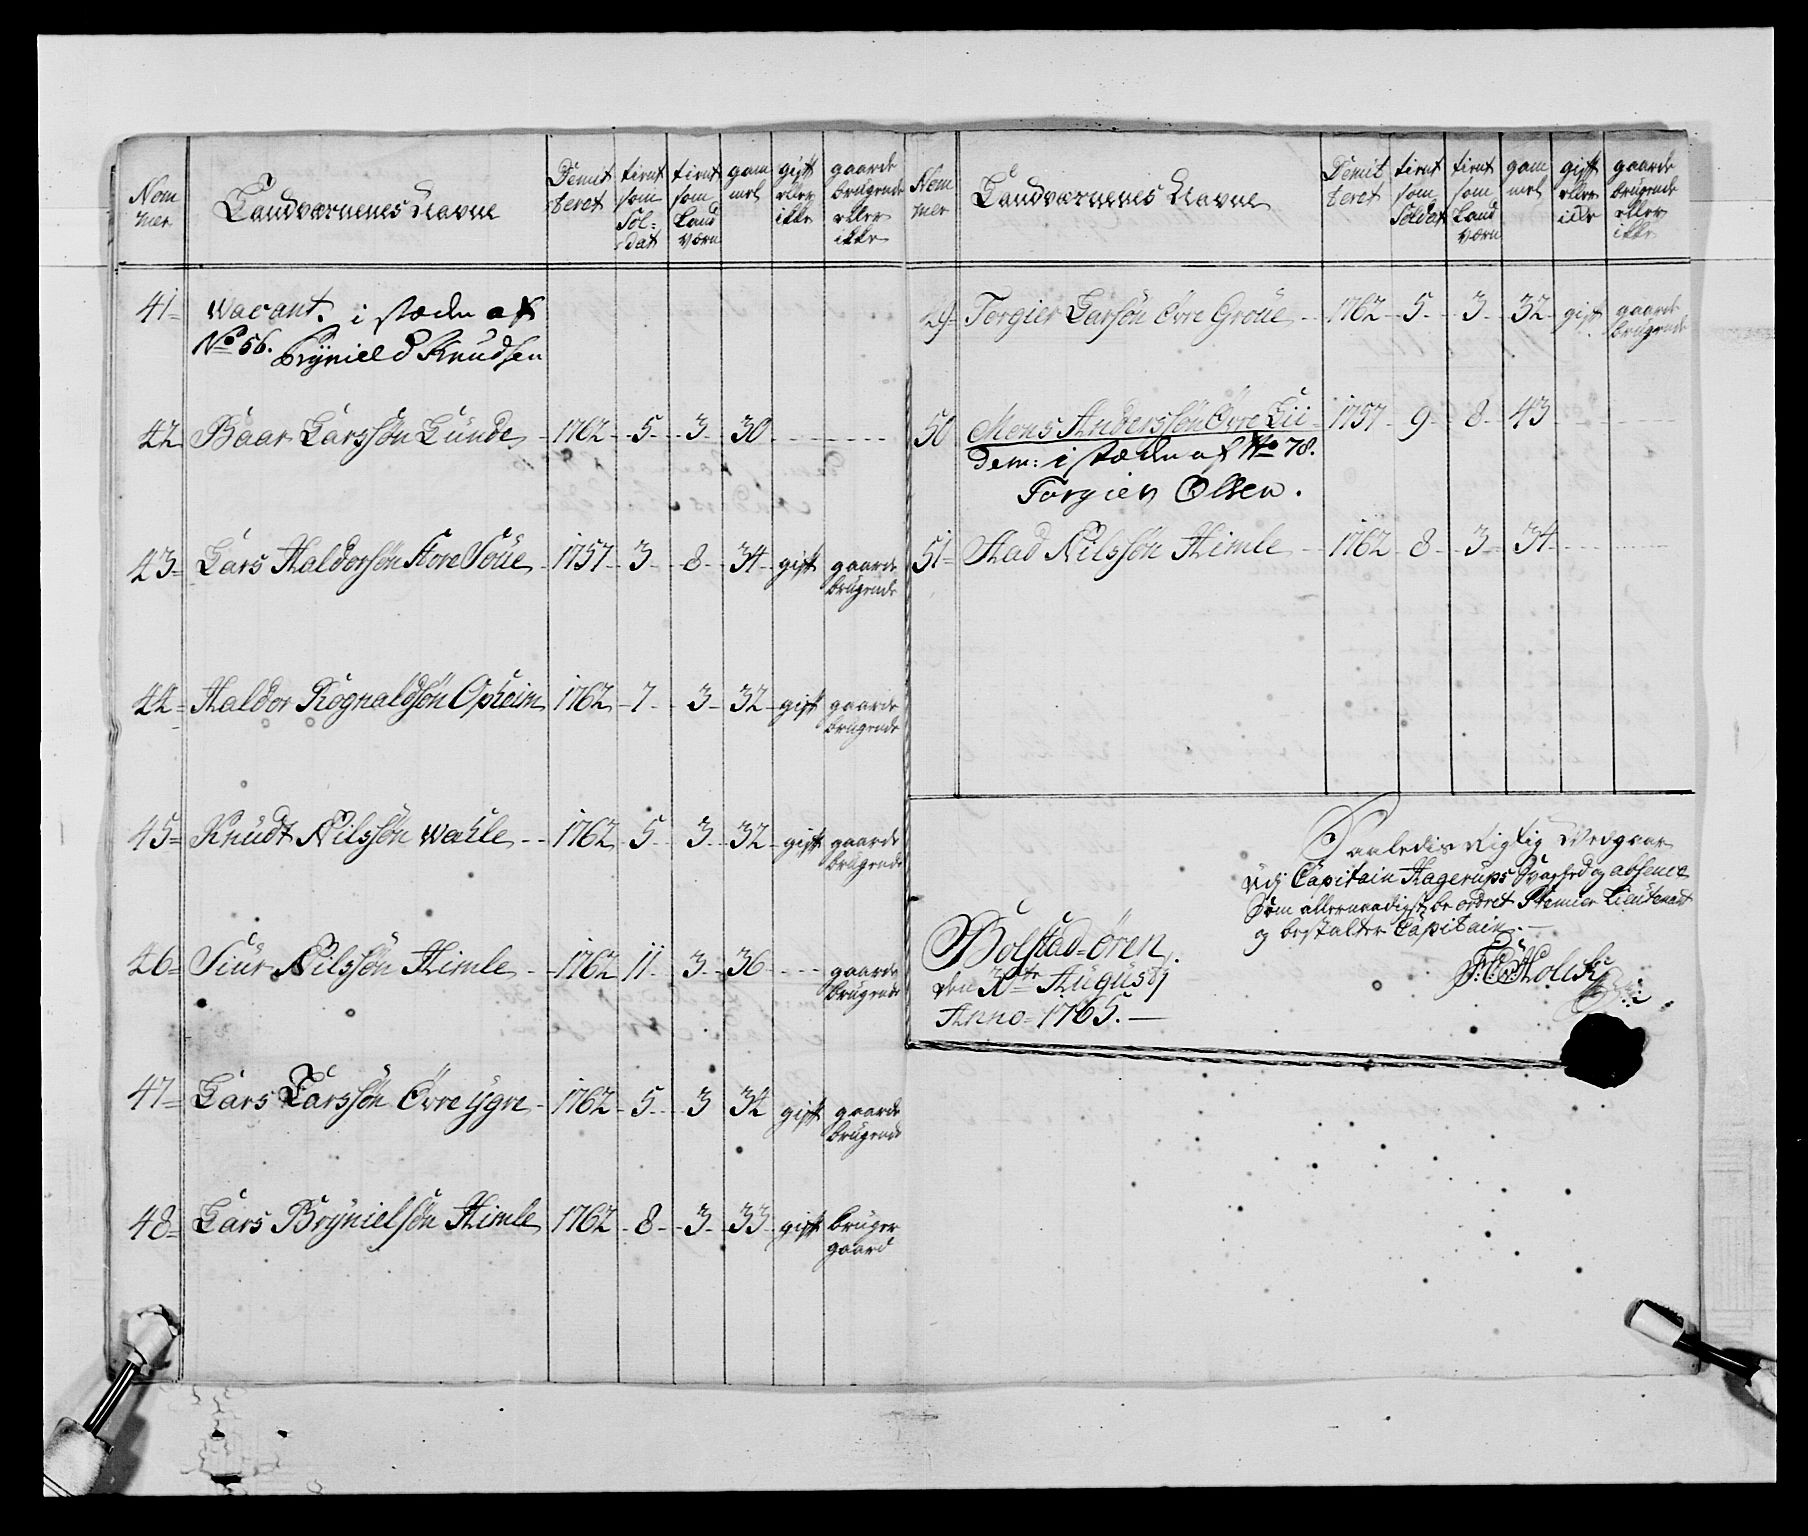 Nom
mer
Landværnenes Navne
Demit
teret
tient
som
Sol=
dat
tient
som
Land
værn
gam
mel
gift
eller
ikke
gaarde
brugende
eller
ikke
41= Wacant. i stæden af
No 56. Brÿnield Knudsen
42 Baar Larssøn Lunde 1762 5 3 30
43= Lars Haldorsøn Store Soue 1757 3 8 34 gift gaarde
brugende
44= Haldor Rognaldsøn Opheim 1762 7 3 32 gift gaarde
brugende
45= Knudt Nilssøn Wahle 1762 5 3 32 gift gaarde
brugende
46= Siur Nilssøn Himle 1762 11 3 36 gaarde
brugende
47= Lars Larssøn Øvre ygre 1762 5 3 34 gift gaarde
brugende
48= Lars Brÿnielsøn Himle 1762 8 3 33 gift bruger
gaard
Nom
mer
Landværnenes Navne
Demit
teret
tient
som
Soldat
tient
som
Land
værn
gam
mel
gift
eller
ikke
gaarde
brugende
eller
ikke
49 Torgier Larsøn Øvre Groue 1762 5 3 32 gift gaarde
brugende
50 Mons Anderssøn Øvre Lii 1757 9 8 43
Dem: i stæden af No 78.
Torgier Olsen.
51= Stad Nilssøn Himle 1762 8 3 34
Saaledis Rigtig Vedgaar
udj Capitain Hagerups Svaghed og absence
Som allernaadigst be ordret Premier Lieutenant
og bestalter Capitain.
Bolstad=øren
den Augustj
Anno=1765.